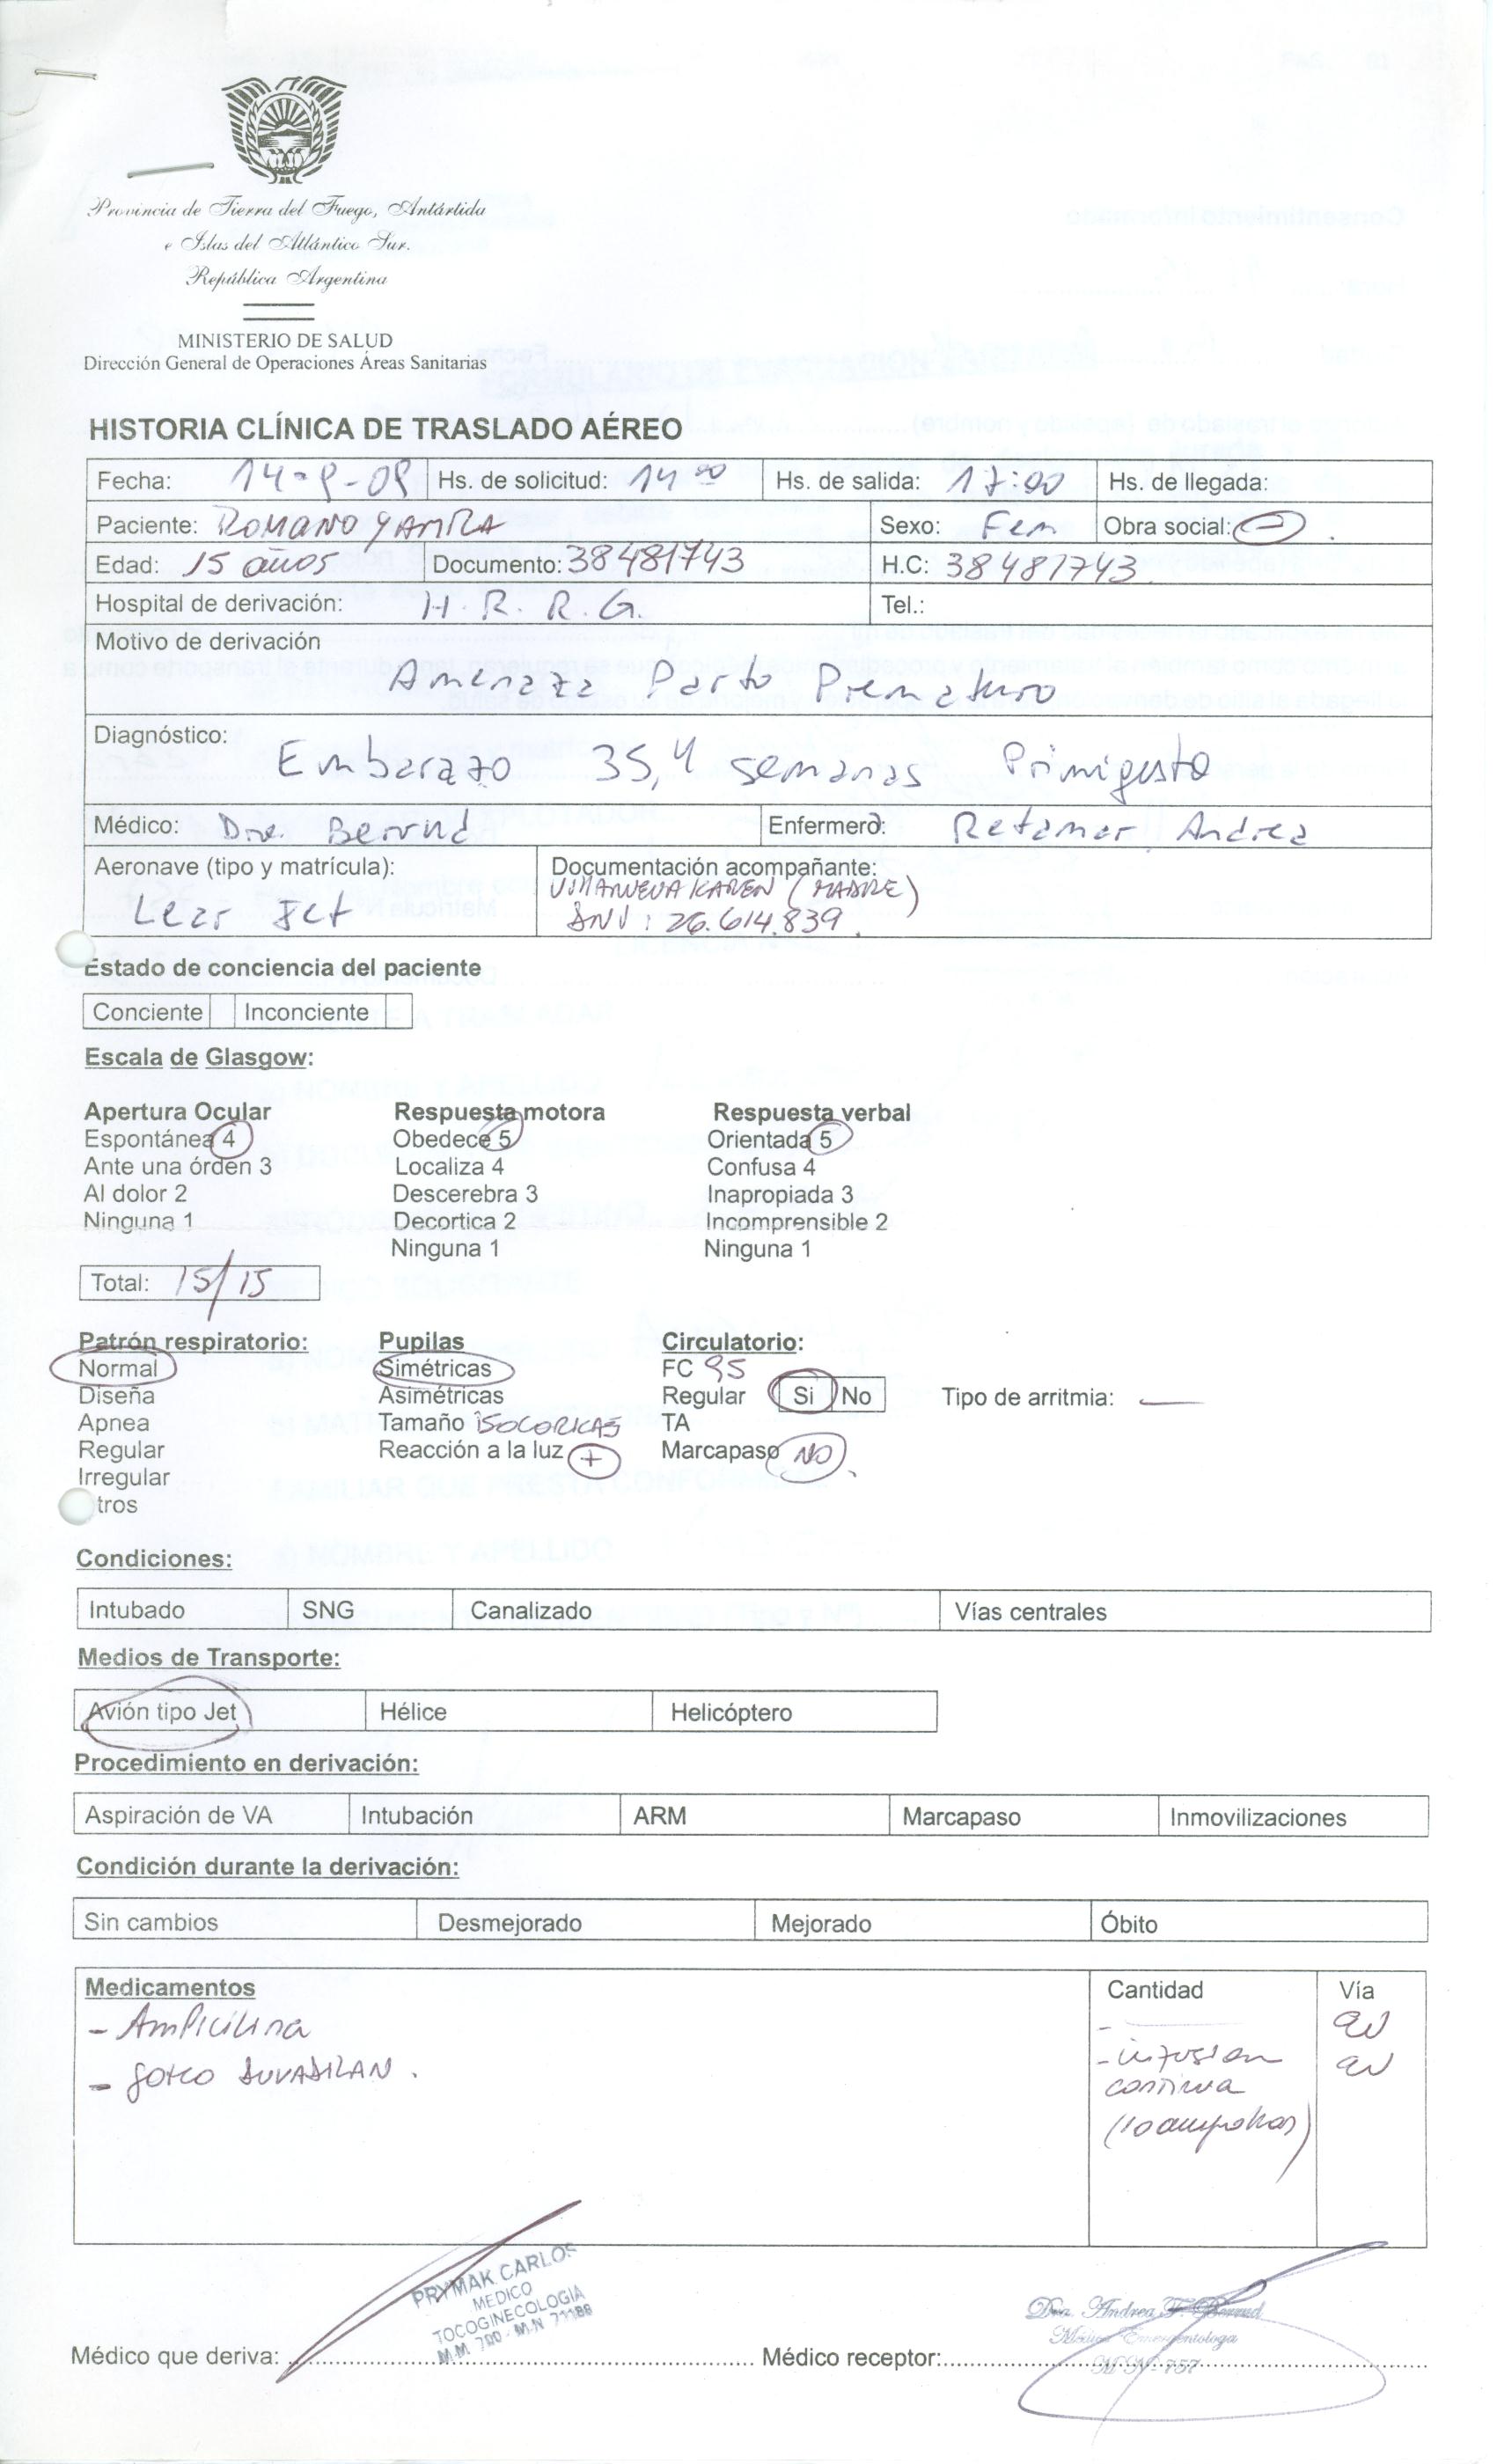 Provincia de Tierra del Fuego, Antártida
e Islas del Atlántico Sur.
República Argentina
MINISTERIO DE SALUD
Dirección General de Operaciones Áreas Sanitarias
HISTORIA CLÍNICA DE TRASLADO AÉREO
Fecha: 14-8-08 Hs. de solicitud: 14 00 Hs. de salida: 17:00 Hs. de llegada:
Paciente: ROMANO YAMILA Sexo: Fem Obra social: -
Edad: 15 años Documento: 38481743 H.C: 38481743.
Hospital de derivación: H. R. R. G. Tel.:
Motivo de derivación
Amenaza Parto Prematuro
Diagnóstico:
Embarazo 35,4 semanas Primigesta
Médico: Dra. Berrud Enfermero: Retamar, Andrea
Aeronave (tipo y matrícula): Documentación acompañante:
Lear Jet VILLANUEVA KAREN (MADRE)
DNI: 26.614.839.
Estado de conciencia del paciente
Conciente Inconciente
Escala de Glasgow:
Apertura Ocular Respuesta motora Respuesta verbal
Espontánea 4 Obedece 5 Orientada 5
Ante una órden 3 Localiza 4 Confusa 4
Al dolor 2 Descerebra 3 Inapropiada 3
Ninguna 1 Decortica 2 Incomprensible 2
Ninguna 1 Ninguna 1
Total: 15/15
Patrón respiratorio: Pupilas Circulatorio:
Normal Simétricas FC 95
Diseña Asimétricas Regular Si No Tipo de arritmia: —
Apnea Tamaño ISOCORICAS TA
Regular Reacción a la luz + Marcapaso NO.
Irregular
tros
Condiciones:
Intubado SNG Canalizado Vías centrales
Medios de Transporte:
Avión tipo Jet Hélice Helicóptero
Procedimiento en derivación:
Aspiración de VA Intubación ARM Marcapaso Inmovilizaciones
Condición durante la derivación:
Sin cambios Desmejorado Mejorado Óbito
Medicamentos Cantidad Vía
- Ampicilina - ev
- goteo DUVADILAN. - infusion ev
continua
(10 ampollas)
PRYMAK CARLOS
MEDICO
TOCOGINECOLOGIA
M.M. 700 - M.N 71188
Dra. Andrea F. Berrud
Médica Emergentologa
M.N. 757
Médico que deriva: Médico receptor: